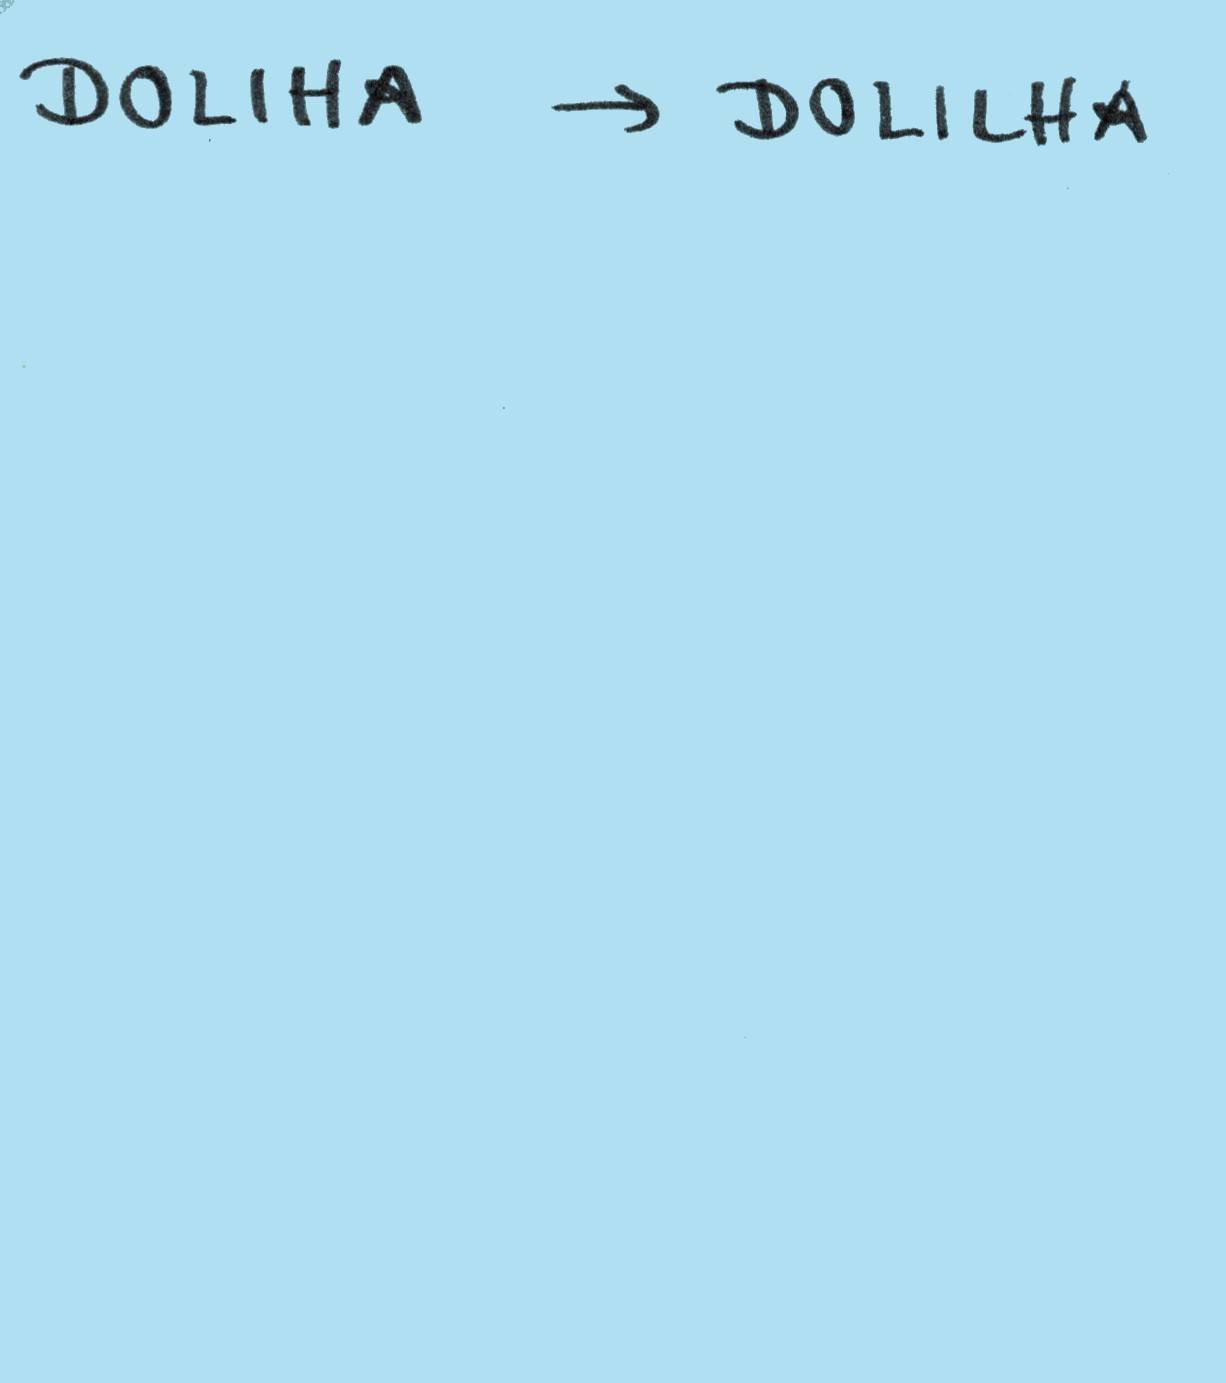 DOLIHA → DOLILHA